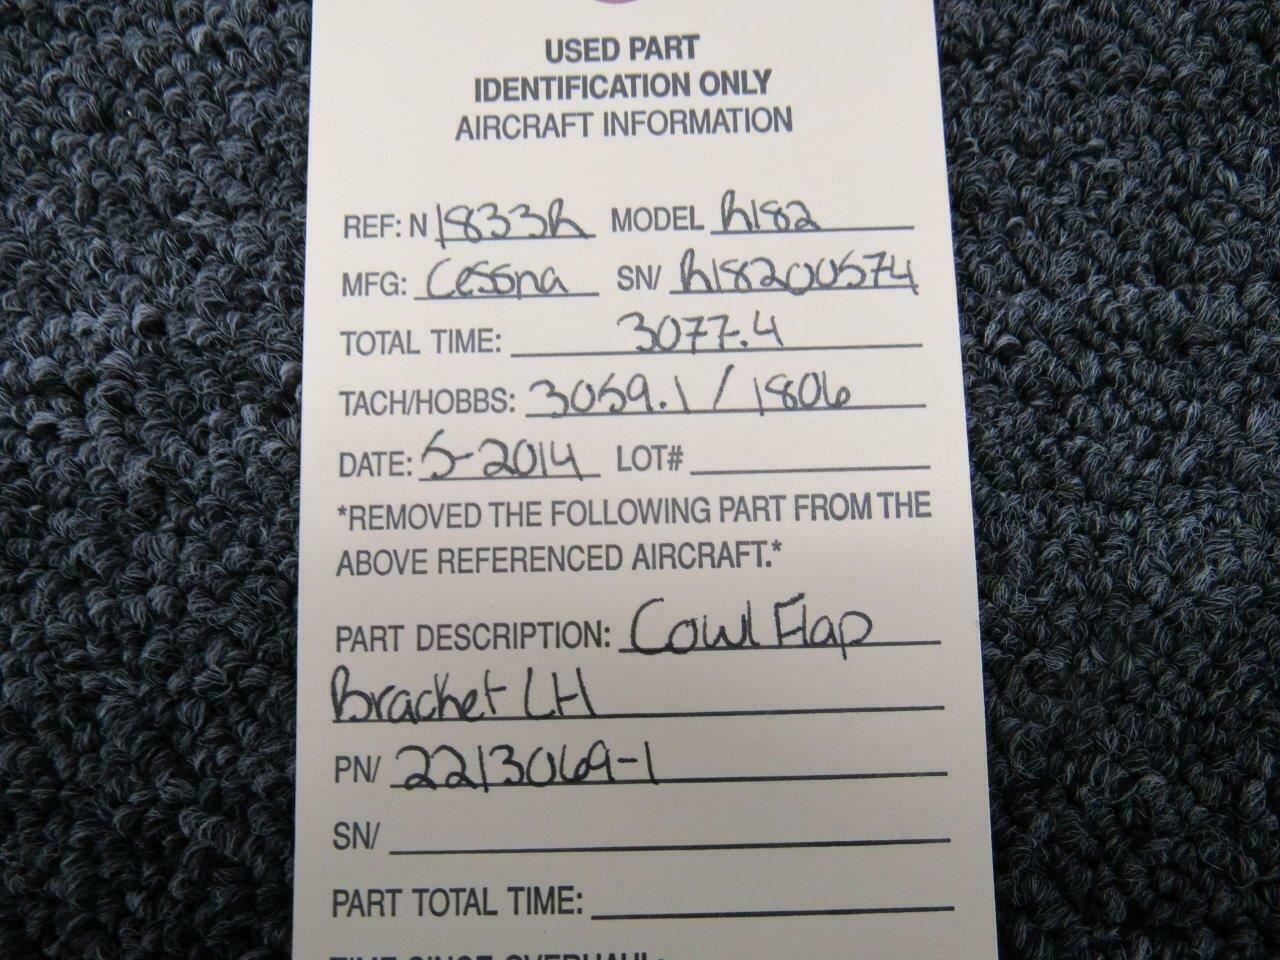 USED PART
IDENTIFICATION ONLY
AIRCRAFT INFORMATION
REF: N 1833R MODEL R182
MFG: Cessna SN/ R18200574
TOTAL TIME: 3077.4
TACH/HOBBS: 3059.1 / 1806
DATE: 5-2014 LOT#
*REMOVED THE FOLLOWING PART FROM THE
ABOVE REFERENCED AIRCRAFT.*
PART DESCRIPTION: Cowl Flap
Bracket LH
PN/ 2213069-1
SN/
PART TOTAL TIME:
TIME SINCE OVERHAUL: